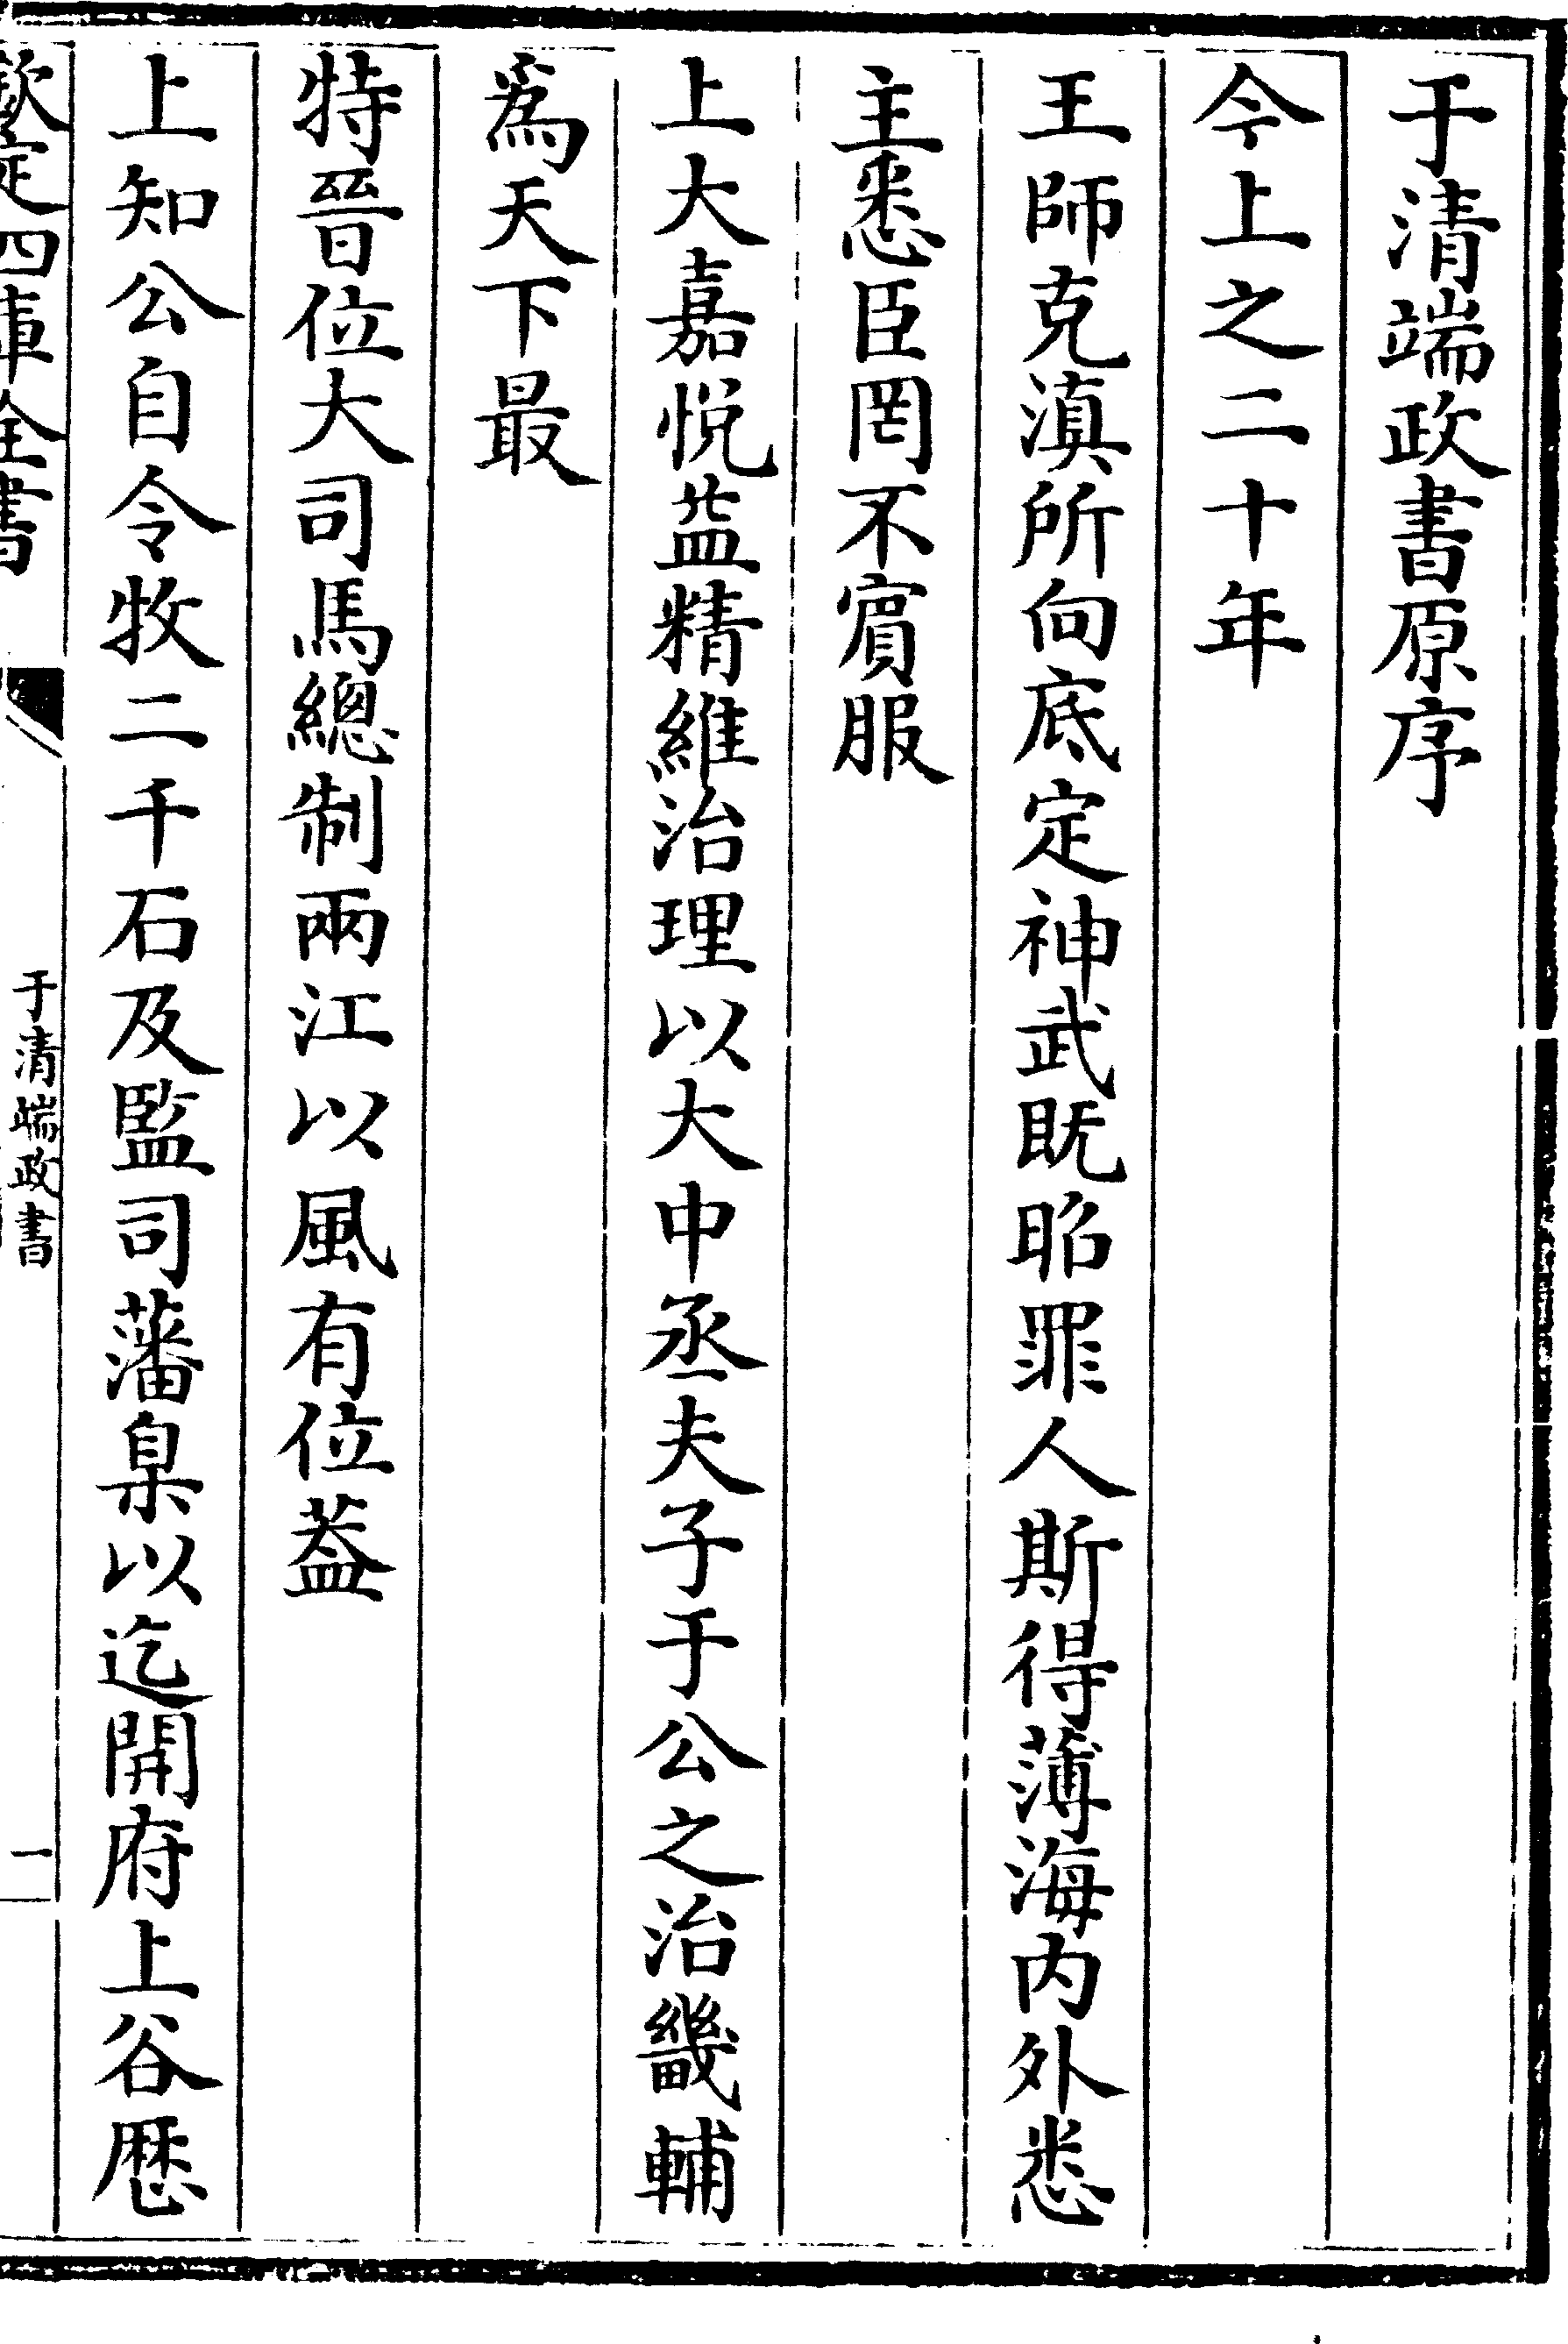 于清端政書原序
今上之二十年
王師克滇所向底定神武既昭罪人斯得薄海內外悉
主悉臣罔不賔服
上大嘉悅益精維治理以大中丞夫子于公之治畿輔
爲天下最
特晉位大司馬總制兩江以風有位葢
上知公自令牧二千石及監司藩臬以迄開府上谷歴
欽定四庫全書
于清端政書
一